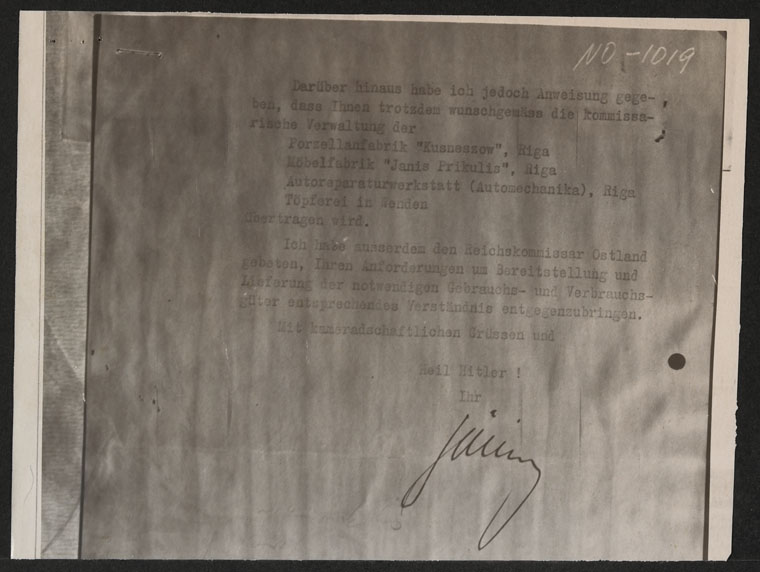 NO-1019
Darüber hinaus habe ich jedoch Anweisung gege-
ben, dass Ihnen trotzdem wunschgemäss die kommissa-
rische Verwaltung der
Porzellanfabrik "Kusnessow", Riga
Möbelfabrik "Janis Prikulis", Riga
Autoreparaturwerkstatt (Automechanika), Riga
Töpferei in Wenden
übertragen wird.
Ich habe ausserdem den Reichskommissar Ostland
gebeten, Ihren Anforderungen um Bereitstellung und
Lieferung der notwendigen Gebrauchs- und Verbrauchs-
güter entsprechendes Verständnis entgegenzubringen.
Mit kameradschaftlichen Grüssen und
Heil Hitler !
Ihr
Göring